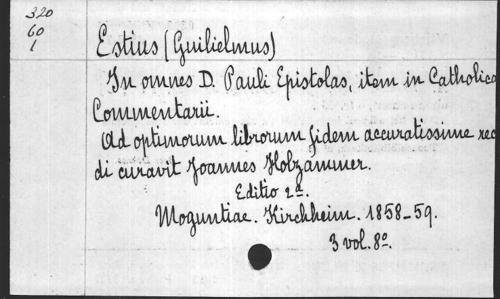 320
60
1
Estius (Guilielmus)
In omnes D. Pauli Epistolas, item in Catholica
Commentarii.
Ad optimorum librorum fidem accuratissime rec
di curavit Joannes Holzammer.
Editio 2a.
Moguntiae. Kirchheim. 1858-59.
3 vol. 8o.